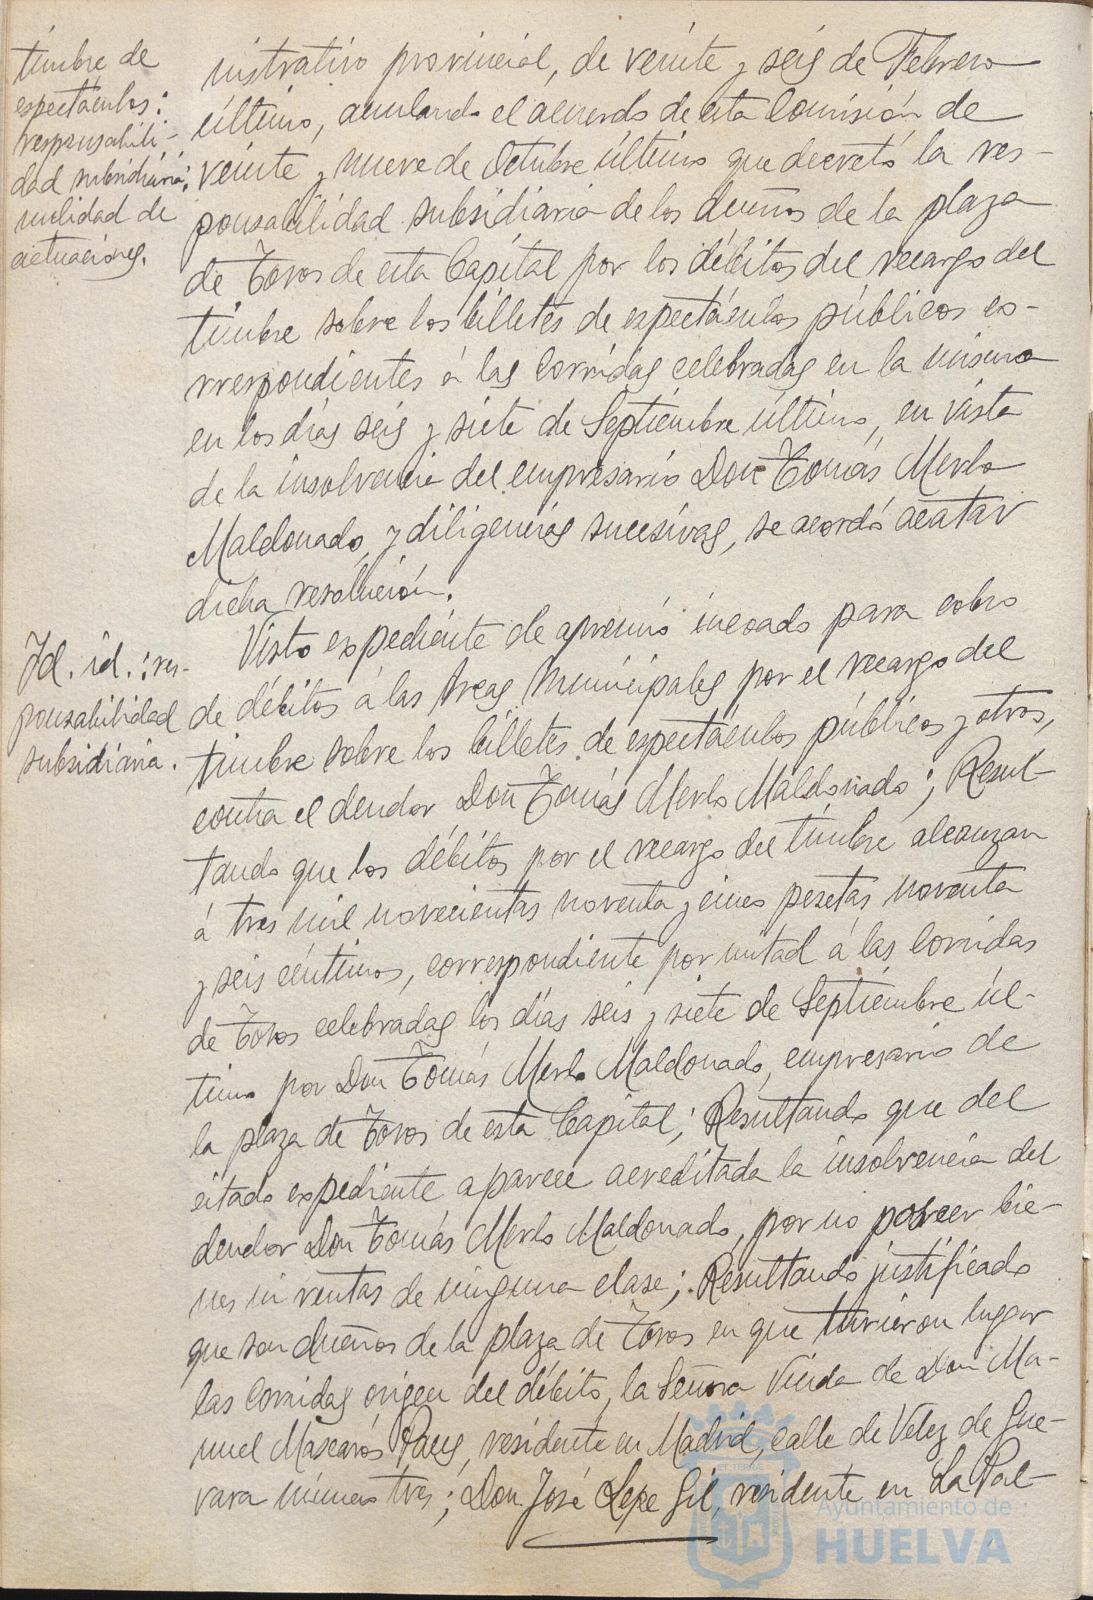 timbre de
espectáculos:
responsabili-
dad subsidiaria:
nulidad de
actuaciones.
nistrativo provincial, de veinte y seis de Febrero
último, anulando el acuerdo de esta Comisión de
veinte y nueve de Octubre último que decretó la res-
ponsabilidad subsidiaria de los dueños de la plaza
de Toros de esta Capital por los débitos del recargo del
timbre sobre los billetes de espectáculos públicos co-
rrespondientes á las corridas celebradas en la misma
en los días seis y siete de Septiembre último, en vista
de la insolvencia del empresario Don Tomás Merlo
Maldonado, y diligencias sucesivas, se acordó acatar
dicha resolución.
Id. id.: res-
ponsabilidad
subsidiaria.
Visto expediente de apremio incoado para cobro
de débitos á las Arcas Municipales por el recargo del
timbre sobre los billetes de espectáculos públicos y otros,
contra el deudor Don Tomás Merlo Maldonado; Resul-
tando que los débitos por el recargo del timbre alcanzan
á tres mil novecientas noventa y cinco pesetas noventa
y seis céntimos, correspondiente por mitad á las Corridas
de Toros celebradas los días seis y siete de Septiembre úl-
timo por Don Tomás Merlo Maldonado, empresario de
la plaza de Toros de esta Capital; Resultando que del
citado expediente aparece acreditada la insolvencia del
deudor Don Tomás Merlo Maldonado, por no poseer bie-
nes ni rentas de ninguna clase; Resultando justificado
que son dueños de la plaza de Toros en que tuvieron lugar
las Corridas origen del débito, la Señora Viuda de Don Ma-
nuel Mascarós, residente en Madrid, calle de Velez de Gue-
vara número tres; Don José Lepe Gil, residente en La Pal-
Ayuntamiento de
HUELVA